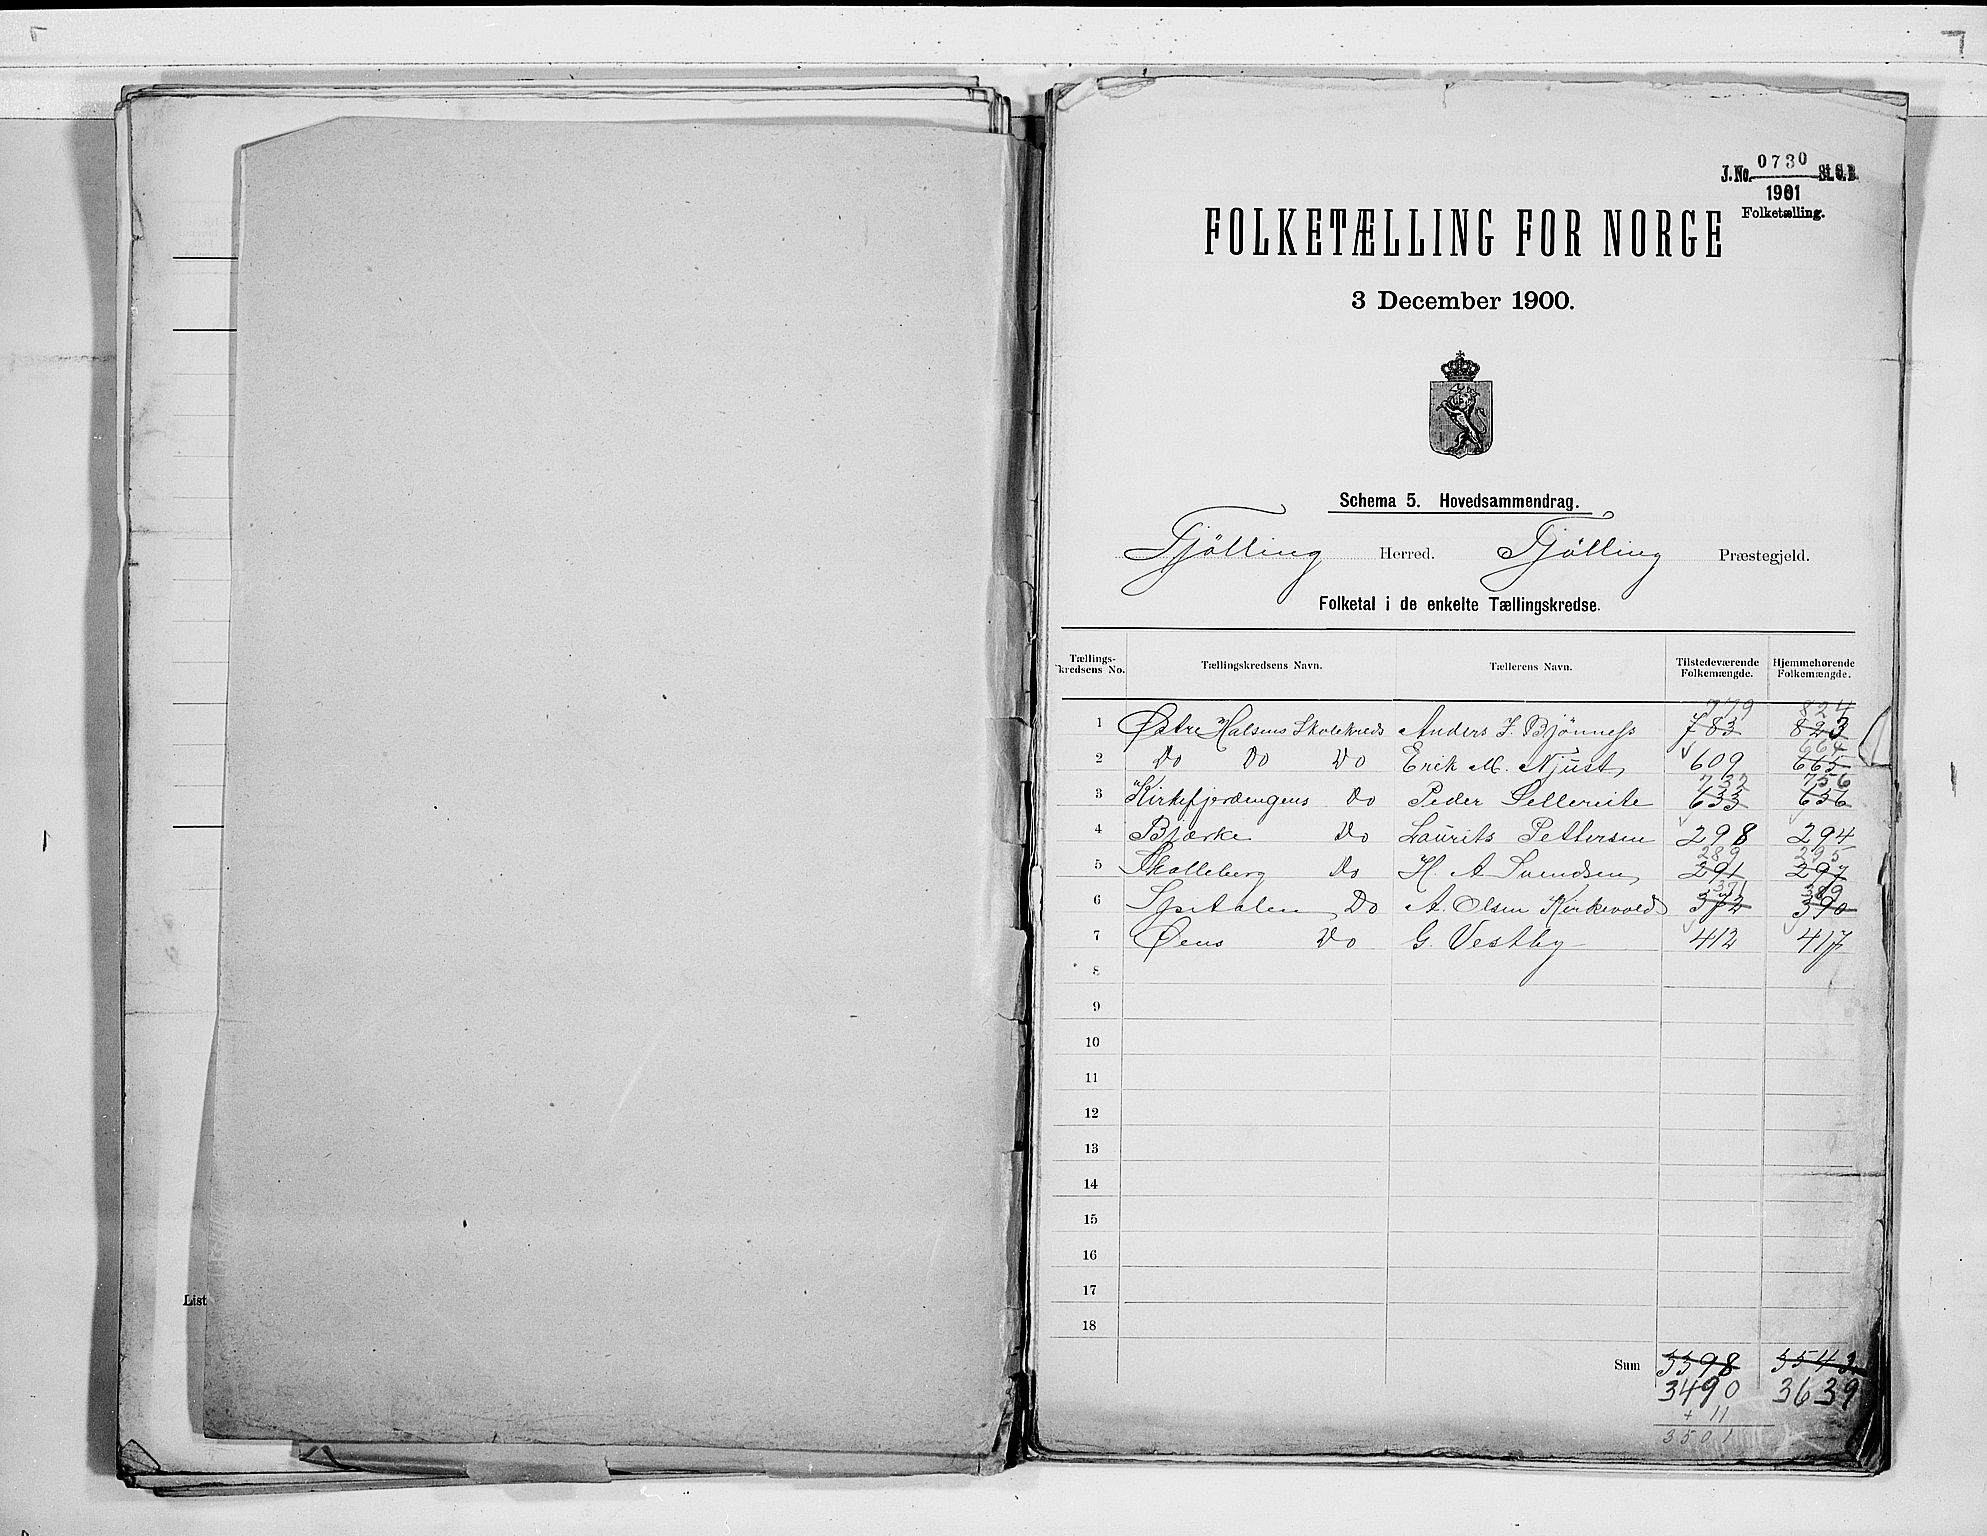 List
J. No. 0730 St. C. B.
1901
Folketælling.
FOLKETÆLLING FOR NORGE
3 December 1900.
Schema 5. Hovedsammendrag.
Tjölling Herred. Tjölling Præstegjeld.
Folketal i de enkelte Tællingskredse.
Tællings- kredsens No. Tællingskredsens Navn. Tællerens Navn. Tilstedeværende Folkemængde. Hjemmehørende Folkemængde.
779 824
1 Østre Halsens Skolekreds Anders J. Bjönness 783 823
664
2 Do Do Do Erik M. Njust 609 665
732 756
3 Kirkefjerdingens Do Peder Sellereite 633 656
4 Bjerke Do Laurits Pettersen 298 294
289 295
5 Skalleberg Do H. A. Svendsen 291 297
371 389
6 Spitalen Do A. Olsen Kirkevold 372 390
7 Øens Do G. Vestby 412 417
8
9
10
11
12
13
14
15
16
17
18
Sum 3398 3543
3490 3639
+ 11
3501